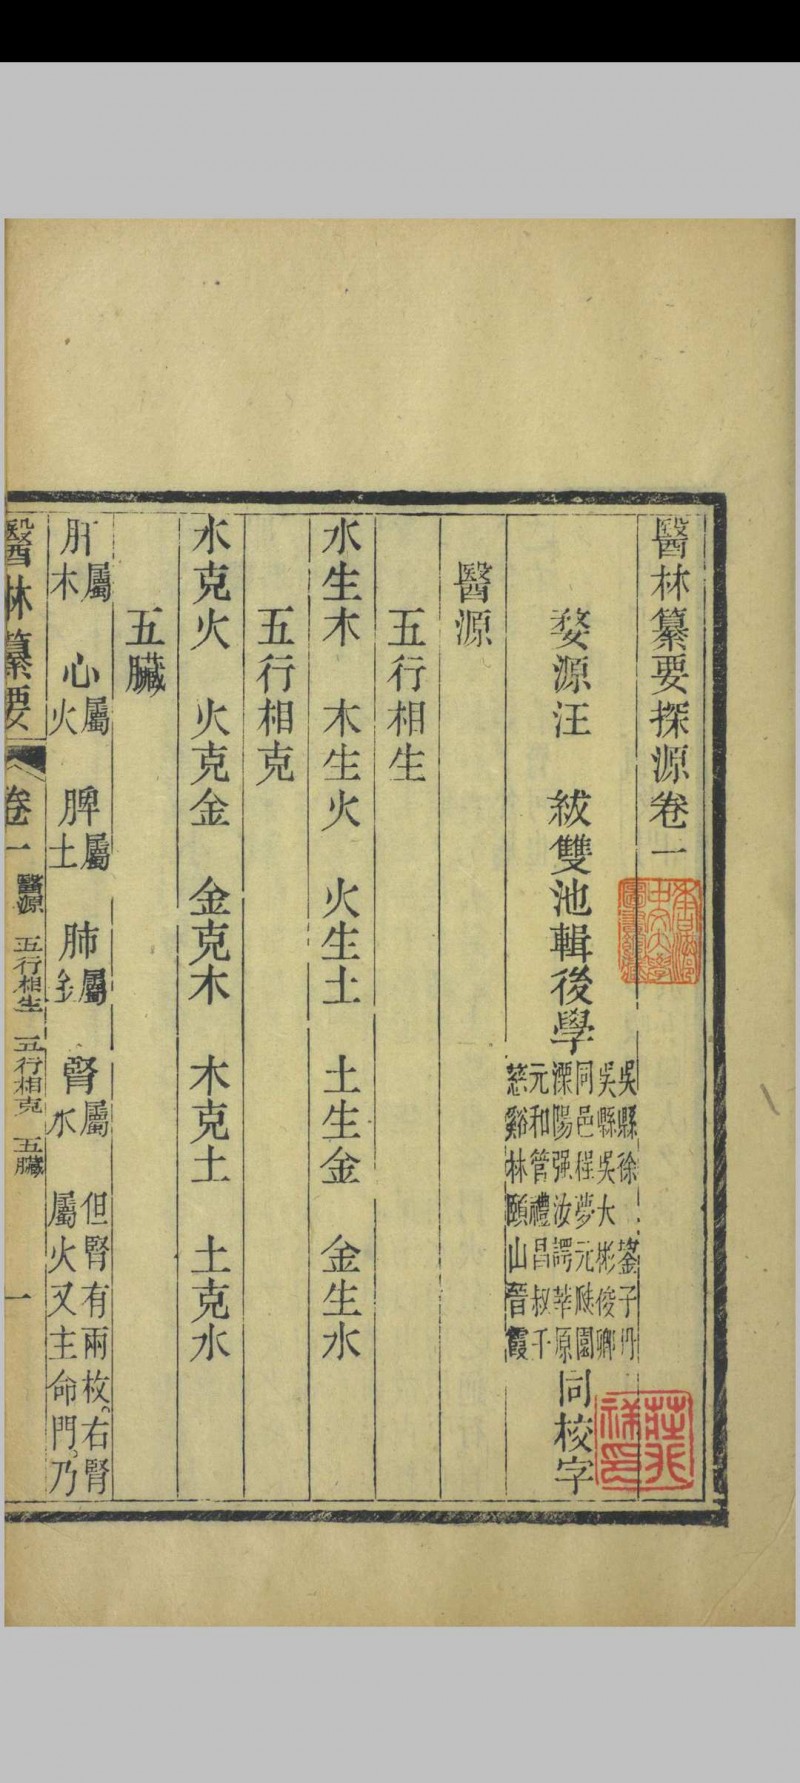 醫林纂要探源卷一
婺源汪 紱雙池輯後學
吳縣徐 鋆子丹
吳縣吳大彬俊卿
同邑程夢元勝園
溧陽强汝諤莘原
元和管禮昌叔千
慈谿林頤山晉霞
同校字
醫源
五行相生
水生木 木生火 火生土 土生金 金生水
五行相克
水克火 火克金 金克木 木克土 土克水
五臟
肝屬木 心屬火 脾屬土 肺屬金 腎屬水 但腎有兩枚。右腎屬火又主命門。乃
醫林纂要 卷一 醫源 五行相生 五行相克 五臟 一
香港中文大學圖書館藏